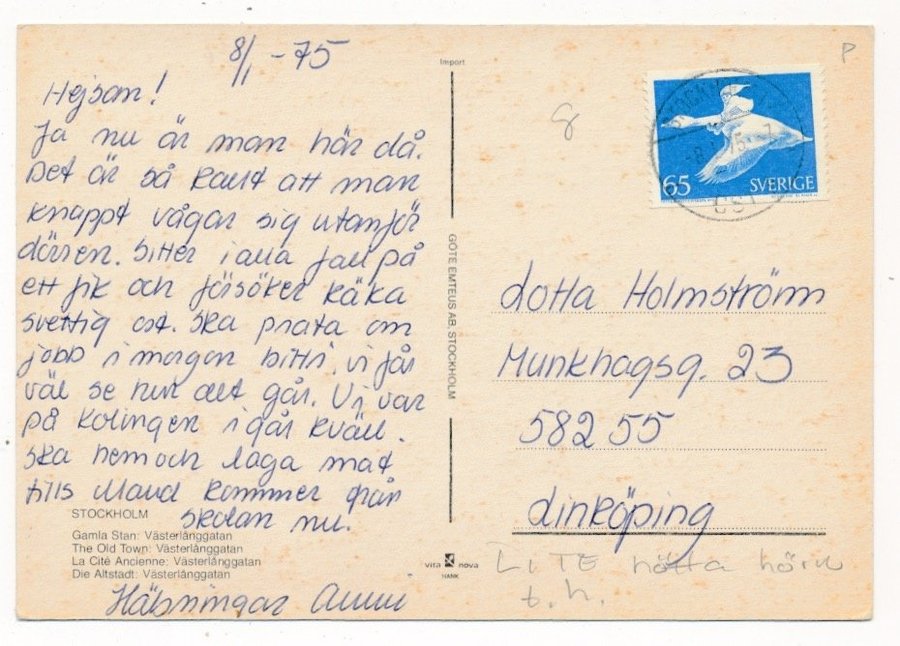 8/1 -75
Hejsan!
Ja nu är man här då.
Det är så kallt att man
knappt vågar sig utanför
dörren. Sitter i alla fall på
ett fik och försöker käka
svettig ost. Ska prata om
jobb i morgon bitti, vi får
väl se hur det går. Vi var
på Kolingen i går kväll.
Ska hem och laga mat
tills Maud kommer från
skolan nu.
STOCKHOLM
Gamla Stan: Västerlånggatan
The Old Town: Västerlånggatan
La Cité Ancienne: Västerlånggatan
Die Altstadt: Västerlånggatan
Hälsningar
Import
GÖTE EMTEUS AB, STOCKHOLM
vita nova
HANK
P
8
65 SVERIGE
ÖST
Lotta Holmström
Munkhagsg. 23
582 55
Linköping
LITE nötta hörn
t.h.